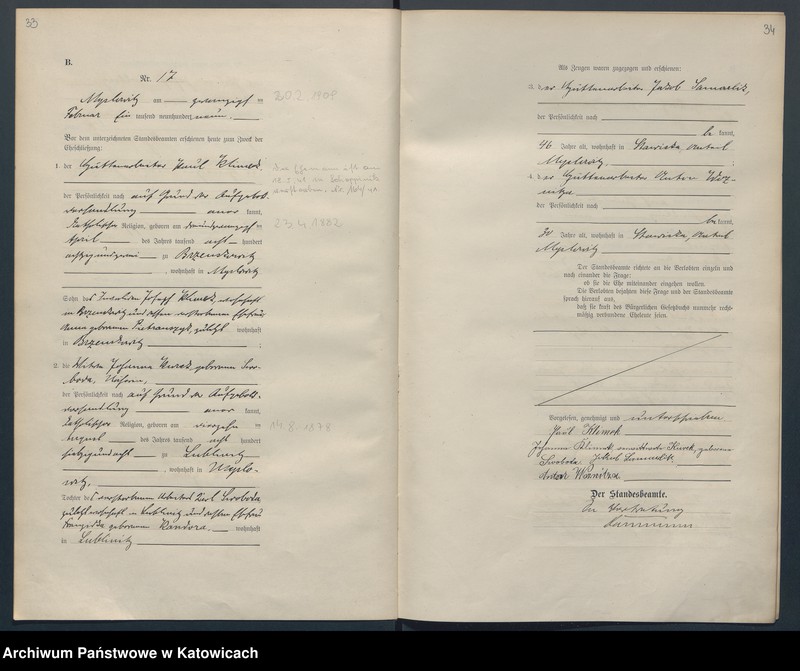 33
B.
Nr. 17
Myslowitz am zwanzigsten
Februar Ein tausend neunhundert neun.
20.2.1909
Vor dem unterzeichneten Standesbeamten erschienen heute zum Zweck der
Eheschließung:
1. der Hüttenarbeiter Paul Klimek,
der Persönlichkeit nach auf Grund der Aufgebots-
verhandlung aner kannt,
katholischer Religion, geboren am dreiundzwanzigsten
23.4.1882
April des Jahres tausend acht hundert
achtzigundzwei zu Brzenskowitz
, wohnhaft in Myslowitz
Sohn des Invaliden Josef Klimek, wohnhaft
in Brzenskowitz und dessen verstorbenen Ehefrau
Anna geborenen Pietraszyk, zuletzt wohnhaft
in Brzenskowitz ;
2. die Witwe Johanna Kurek, geborene Swo-
boda,
der Persönlichkeit nach auf Grund der Aufgebots-
verhandlung aner kannt,
katholischer Religion, geboren am vierzehnten
14.8.1878
August des Jahres tausend acht hundert
siebzigundacht zu Lublinitz
, wohnhaft in Myslo-
witz,
Tochter des verstorbenen Arbeiters Karl Swoboda,
zuletzt wohnhaft in Lublinitz und dessen Ehefrau
Franziska geborenen Kandora, wohnhaft
in Lublinitz
34
Als Zeugen waren zugezogen und erschienen:
3. der Hüttenarbeiter Jakob
der Persönlichkeit nach
be kannt,
46 Jahre alt, wohnhaft in Stawiska, Anteil
Myslowitz, ;
4. der Hüttenarbeiter Anton Woz-
nitza
der Persönlichkeit nach
be kannt,
30 Jahre alt, wohnhaft in Stawiska, Anteil
Myslowitz
Der Standesbeamte richtete an die Verlobten einzeln und
nach einander die Frage:
ob sie die Ehe miteinander eingehen wollen.
Die Verlobten bejahten diese Frage und der Standesbeamte
sprach hierauf aus,
daß sie kraft des Bürgerlichen Gesetzbuchs nunmehr recht-
mäßig verbundene Eheleute seien.
Vorgelesen, genehmigt und unterschrieben
Paul Klimek
Johanna Klimek, verwittwete Kurek, geborene
Swoboda. Jakob
Anton Woznitza
Der Standesbeamte.
In Vertretung
Archiwum Państwowe w Katowicach